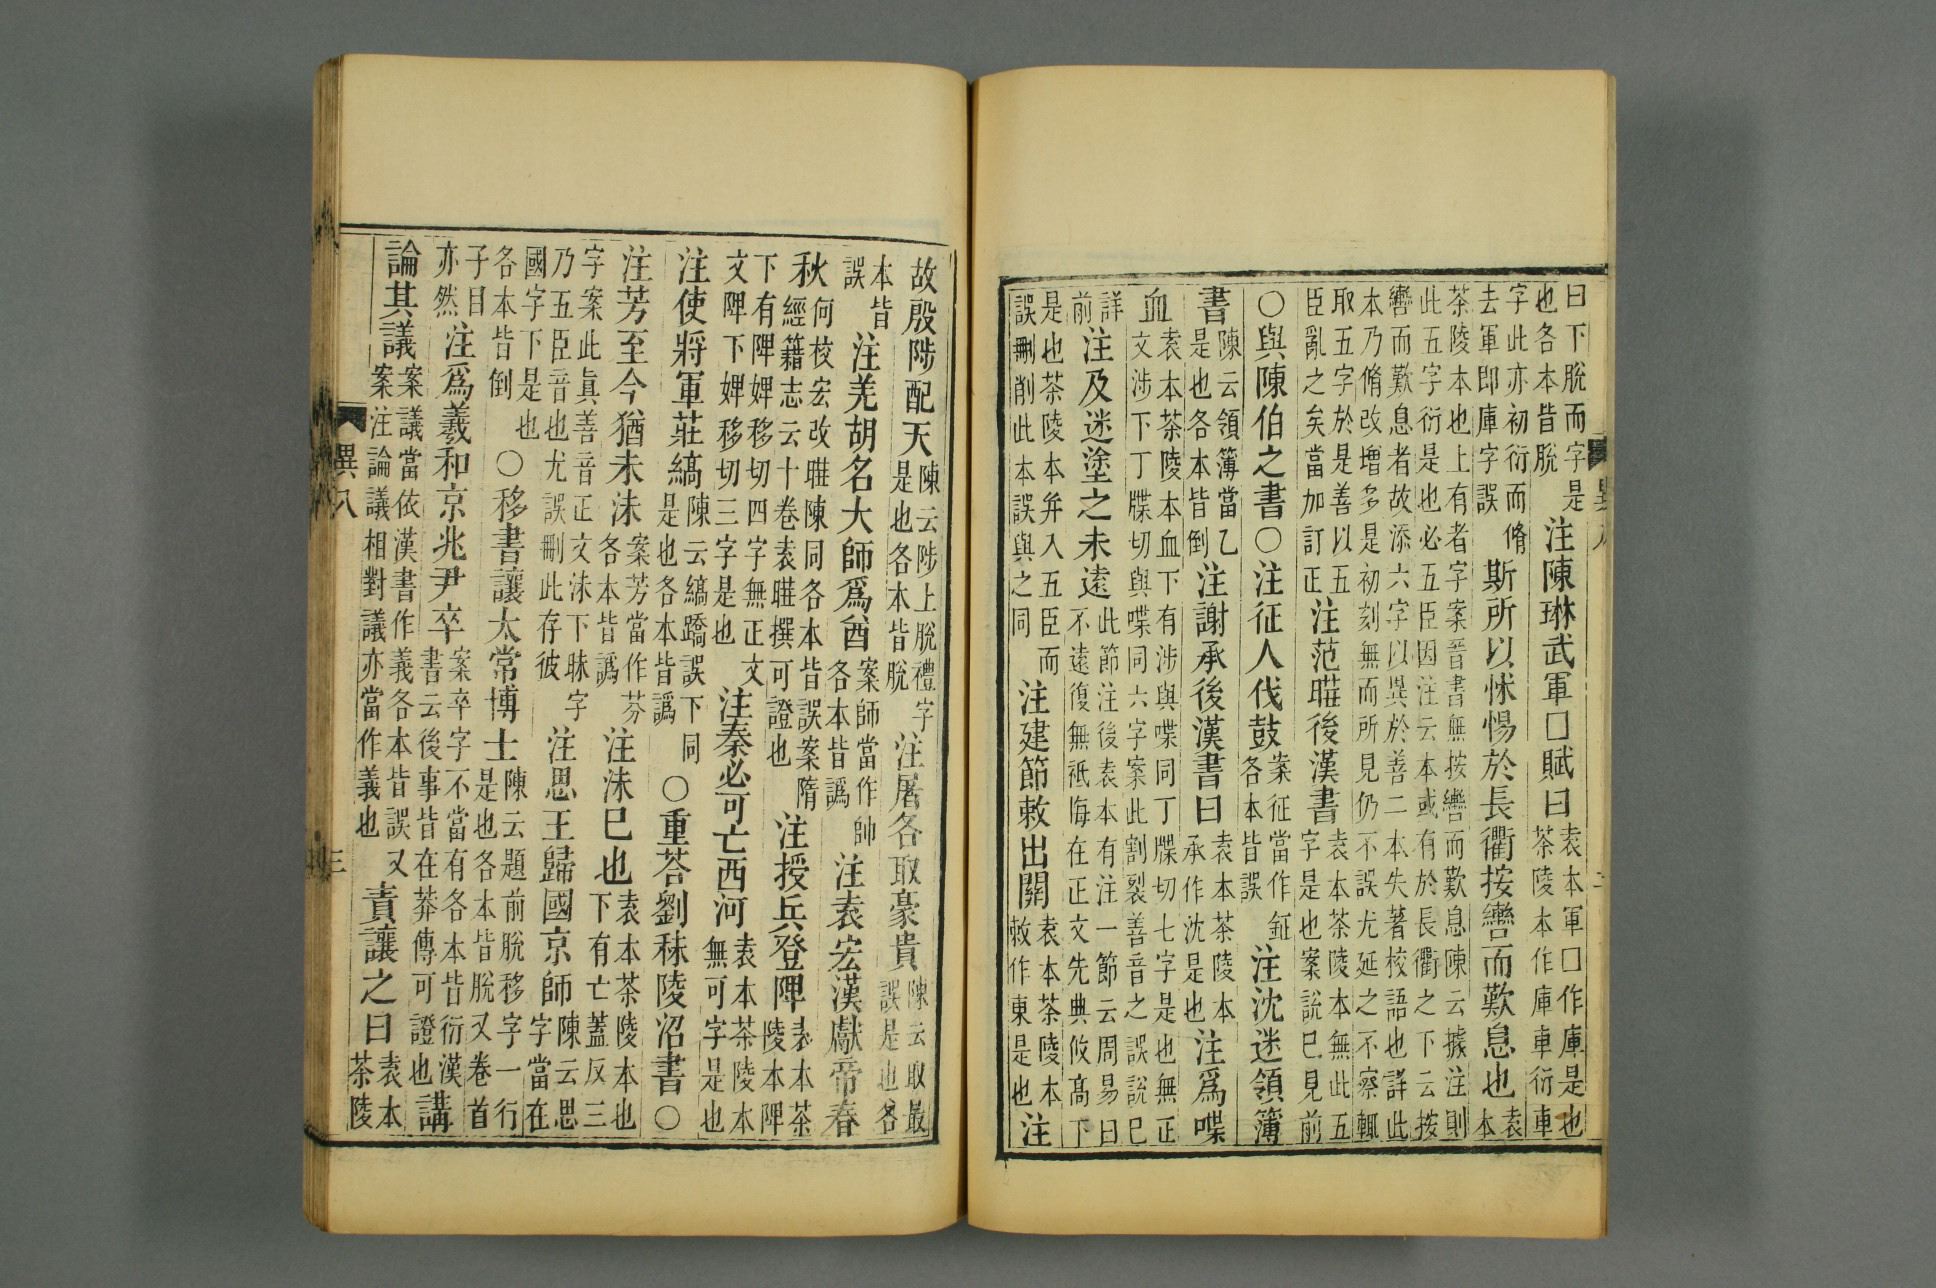 曰下脫而字是也各本皆脫注陳琳武軍囗賦曰袁本軍囗作庫是也茶陵本作庫車衍車
字此亦初衍而脩去軍即庫字誤斯所以怵惕於長衢按轡而歎息也袁本
茶陵本也上有者字案晉書無按轡而歎息陳云據注則此五字衍是也必五臣因注云本或有於長衢之下云按
轡而歎息者故添六字以異於善二本失著校語也詳此本乃脩改增多是初刻無而所見仍不誤尤延之不察輒
取五字於是善以五臣亂之矣當加訂正注范曄後漢書袁本茶陵本無此五字是也案說已見前
○與陳伯之書○注征人伐鼓案征當作鉦各本皆誤注沈迷領簿
書陳云領簿當乙是也各本皆倒注謝承後漢書曰袁本茶陵本承作沈是也注爲喋
血袁本茶陵本血下有涉與喋同丁牒切七字是也無正文涉下丁牒切與喋同六字案此割裂善音之誤說已
詳前注及迷塗之未遠此節注後袁本有注一節云周易曰不遠復無祇悔在正文先典攸高下
是也茶陵本并入五臣而誤刪削此本誤與之同注建節敕出關袁本茶陵本敕作東是也注
故殷陟配天陳云陟上脫禮字是也各本皆脫注屠各取豪貴陳云取最誤是也各
本皆誤注羌胡名大師爲酋案師當作帥各本皆譌注袁宏漢獻帝春
秋何校宏改曄陳同各本皆誤案隋經籍志云十卷袁曄撰可證也注授兵登陴袁本茶陵本陴
下有陴婢移切四字無正文文陴下婢移切三字是也注秦必可亡西河袁本茶陵本無可字是也
注使將軍莊縞陳云縞蹻誤下同是也各本皆譌○重荅劉秣陵沼書○
注芳至今猶未沬案芳當作芬各本皆譌注沬已也袁本茶陵本也下有亡蓋反三
字案此真善音正文沬下昧字乃五臣音也尤誤刪此存彼注思王歸國京師陳云思字當在
國字下是也各本皆倒○移書讓太常博士陳云題前脫移字一行是也各本皆脫又卷首
子目亦然注爲羲和京兆尹卒案卒字不當有各本皆衍漢書云後事皆在莽傳可證也講
論其議案議當依漢書作義各本皆誤又案注論議相對議亦當作義也責讓之曰袁本茶陵
異八
三